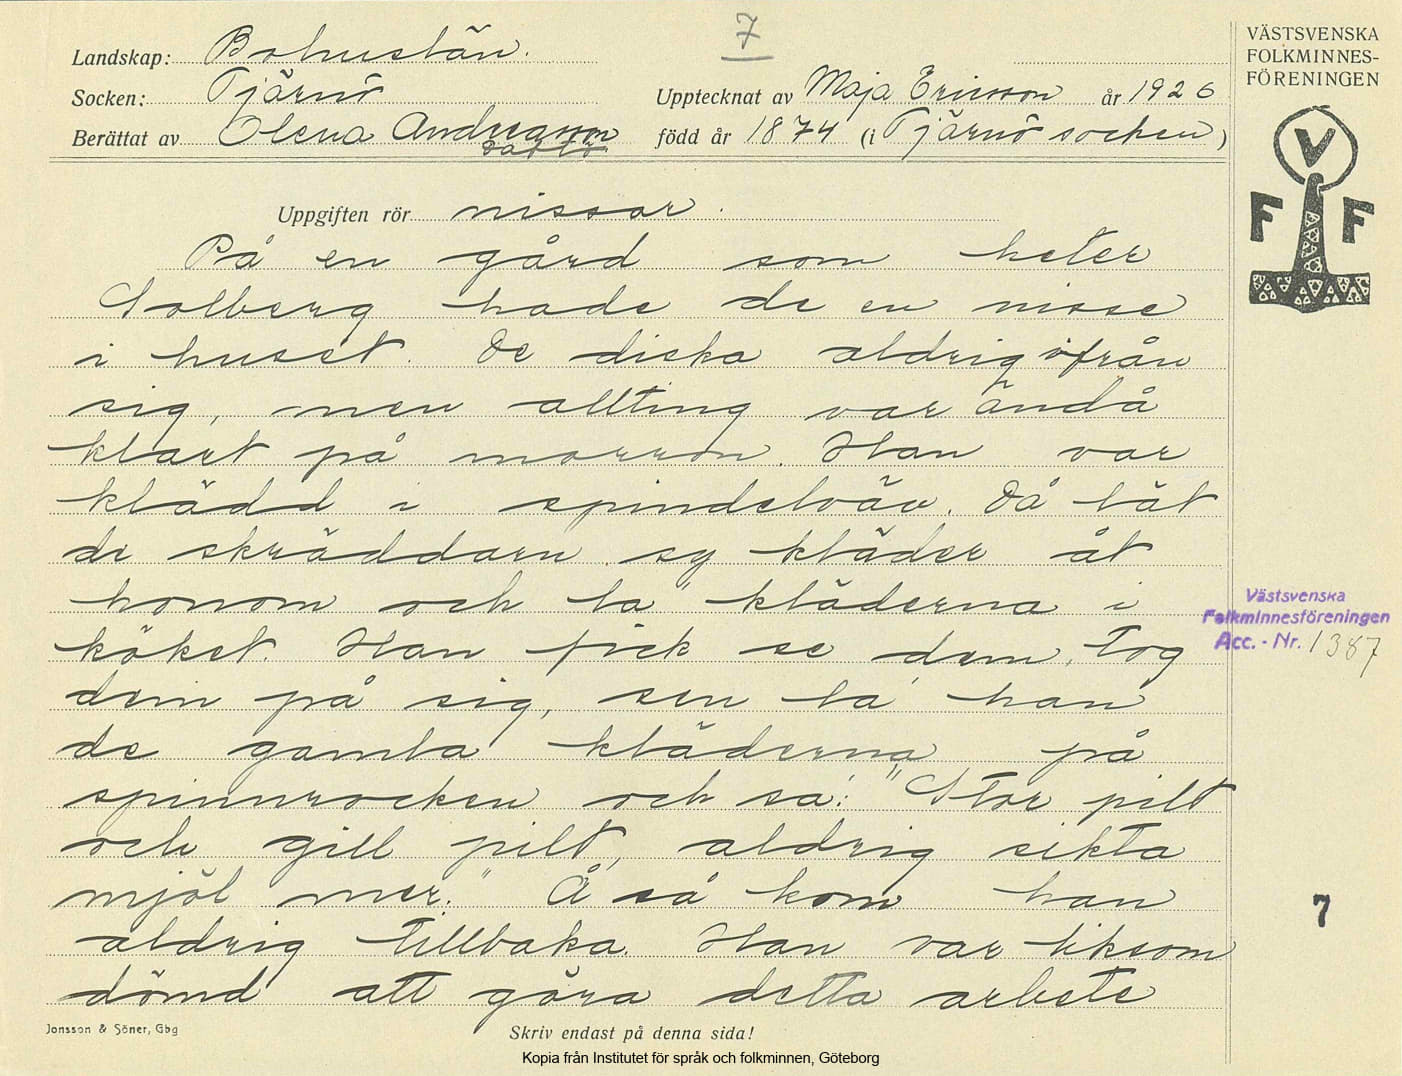 7
Landskap: Bohuslän.
Socken: Tjärnö
Upptecknat av Maja Ericsson år 1926
Berättat av Olena Andreasson
född år 1874 (i Tjärnö socken)
VÄSTSVENSKA
FOLKMINNES-
FÖRENINGEN
V
F F
Uppgiften rör nissar.
På en gård som heter
Solberg hade de en nisse
i huset. De diska aldrig ifrån
sig, men allting var ändå
klart på morron. Han var
klädd i spindelväv. Då lät
de skräddarn sy kläder åt
honom och la kläderna i
köket. Han fick se dem, tog
dem på sig, sen la han
de gamla kläderna på
spinnrocken och sa: "Stor pilt
och gill pilt, aldrig sikta
mjöl mer." Å så kom han
aldrig tillbaka. Han var liksom
dömd att göra detta arbete
Västsvenska
Folkminnesföreningen
Acc. - Nr. 1387
7
Jonsson & Söner, Gbg
Skriv endast på denna sida!
Kopia från Institutet för språk och folkminnen, Göteborg